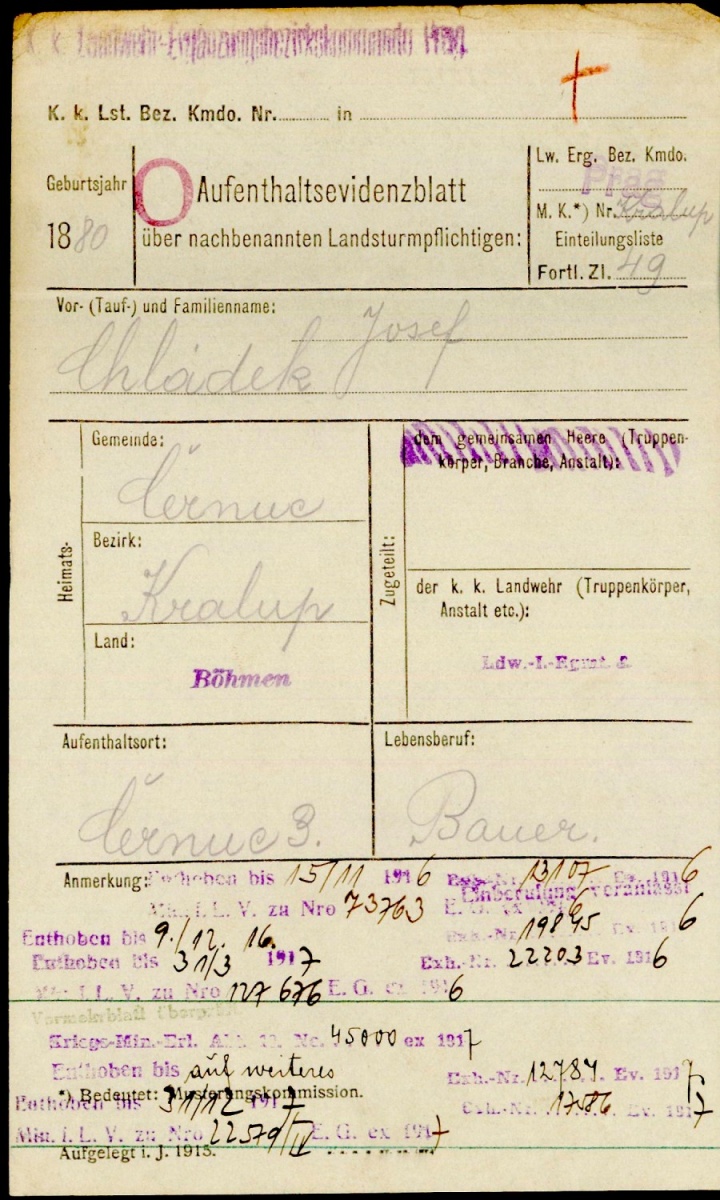 K. k. Landwehr-Ergänzungsbezirkskommando Prag
K. k. Lst. Bez. Kmdo. Nr. in
Geburtsjahr
1880
O Aufenthaltsevidenzblatt
über nachbenannten Landsturmpflichtigen:
Lw. Erg. Bez. Kmdo.
Prag
M. K.*) Nr. Kralup
Einteilungsliste
Fortl. Zl. 49
Vor- (Tauf-) und Familienname:
Josef
Chládek
Heimats-
Gemeinde:
Černuc
Bezirk:
Kralup
Land:
Böhmen
Zugeteilt:
dem gemeinsamen Heere (Truppen-
körper, Branche, Anstalt):
der k. k. Landwehr (Truppenkörper,
Anstalt etc.):
Ldw.-I.-Egmt. 8
Aufenthaltsort:
Černuc 3.
Lebensberuf:
Bauer.
Anmerkung: Enthoben bis 15/11 1916 Exh.-Nr. 13107 Ev. 1916
Einberufung veranlasst
Min. f. L. V. zu Nro 73763 E. G. ex 1916
Enthoben bis 9./12. 16. Exh.-Nr. 19845 Ev. 1916
Enthoben bis 31/3 1917 Exh.-Nr. 22203 Ev. 1916
Min. f. L. V. zu Nro 127676 E. G. ex 1916
Vormerkblatt
Kriegs-Min.-Erl. Abt. Nr. 45000 ex 1917
Enthoben bis auf weiteres Exh.-Nr. 12787 Ev. 1917
*) Bedeutet: Musterungskommission.
Enthoben bis 31/12 1917 Exh.-Nr. 17586 Ev. 1917
Min. f. L. V. zu Nro 22579/IV E. G. ex 1917
Aufgelegt i. J. 1915.